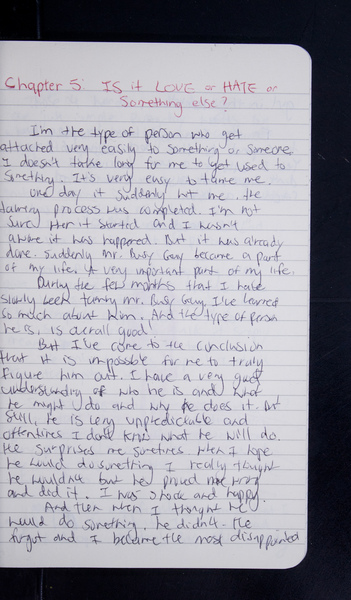 Chapter 5: IS it LOVE or HATE or
Something else?
I'm the type of person who get
attached very easily to something or someone.
I doesn't take long for me to get used to
something. It's very easy to tame me.
One day it suddenly hit me. the
taming process was completed. I'm not
sure when it started and I wasn't
aware it was happened. But it was already
done. Suddenly Mr. Busy Guy became a part
of my life. A very important part of my life.
During the few months that I have
slowly been taming Mr. Busy Guy, I've learned
so much about him. And the type of person
he is, is overall good.
But I've come to the conclusion
that it is impossible for me to truly
figure him out. I have a very good
understanding of who he is and what
he might do and why he does it. But
still, he is very unpredictable and
oftentimes I don't know what he will do.
He surprises me sometimes when I hope
he would do something I really thought
he wouldn't but he proved me wrong
and did it. I was shock and happy.
And then when I thought he
would do something, he didn't. He
forgot and I became the most disappointed